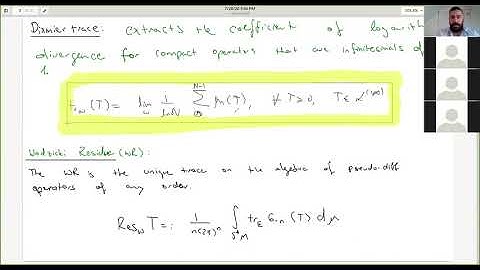 7/20/20 5:56 PM
Dixmier trace: extracts the coefficient of logarith
divergence for compact operators that are infinitesimals of
1.
Tr_ω(T) = lim_ω 1/lnN Σ_0^{N-1} μn(T), ∀ T≥0, T∈ L^(1,∞)
Wodzicki Residue (WR):
The WR is the unique trace on the algebra of pseudo-diff
operators of any order.
Res_W T =: 1/n(2π)^n ∫_{S*M} tr_E σ_-n(T) dμ